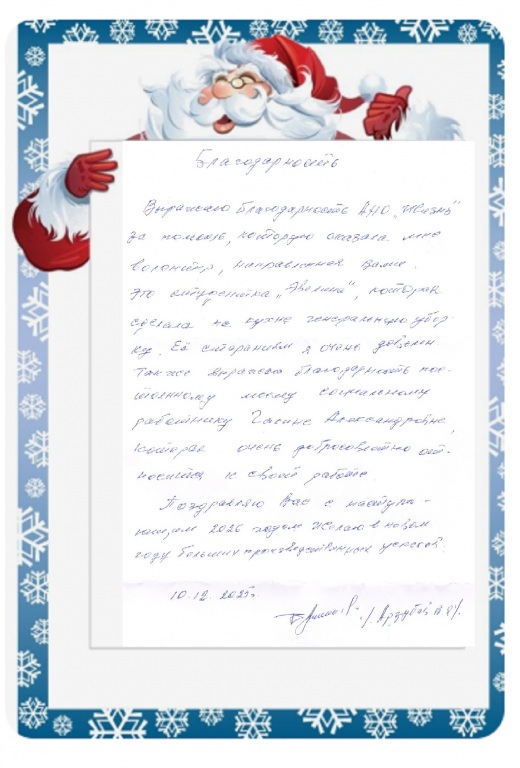 Благодарность
Выражаю благодарность АНО "Жизнь"
за помощь, которую оказала мне
волонтёр, направленная Вами.
Это студентка "Эвелина", которая
сделала на кухне генеральную убор-
ку. Её старанием я очень доволен.
Также выражаю благодарность пос-
тоянному моему социальному
работнику Галине Александровне,
которая очень добросовестно от-
носится к своей работе.
Поздравляю Вас с наступа-
ющим 2026 годом желаю в новом
году больших производственных успехов.
10.12.2025г.